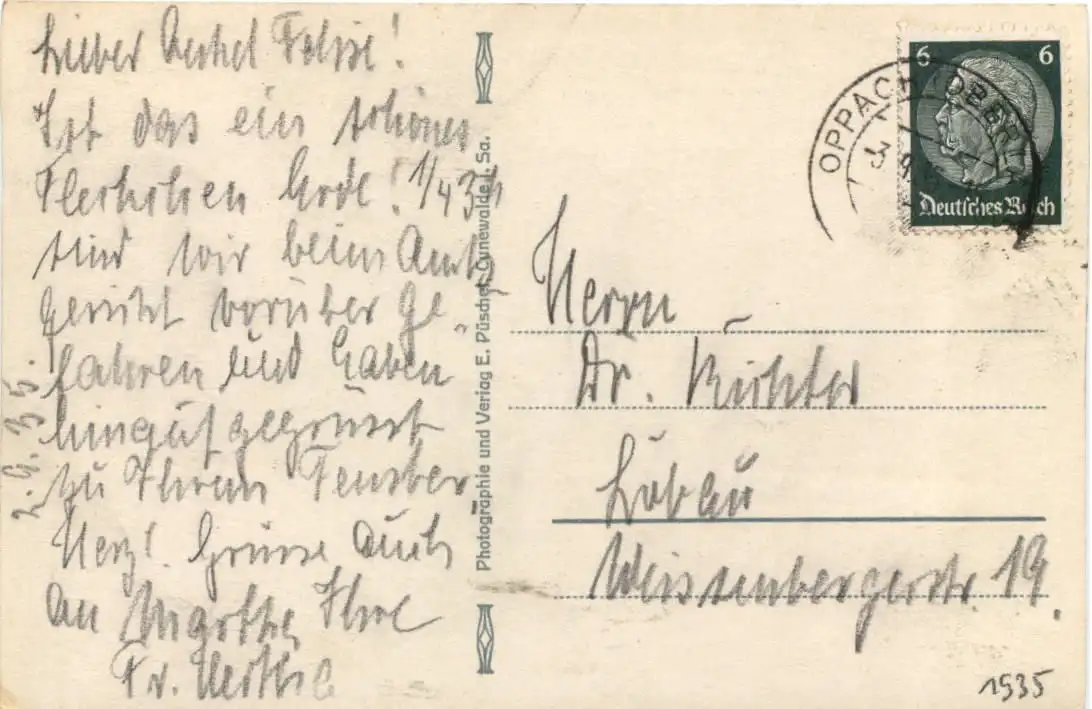 Lieber Onkel Felix!
Ist das ein schönes
Fleckchen Erde! 1/4 3 h
sind wir beim Amts-
gericht vorüber ge-
fahren und haben
hinauf gegrüsst
zu Ihrem Fenster
Herz! Grüsse auch
an Marthe, Ihre
Fr.
2.9.35.
Photographie und Verlag E. Püschel, Cunewalde i. Sa.
6 6
Deutsches Reich
OPPACH (OBERL
Herrn
Dr. Richter
Löbau
Weissenbergerstr. 19.
1935